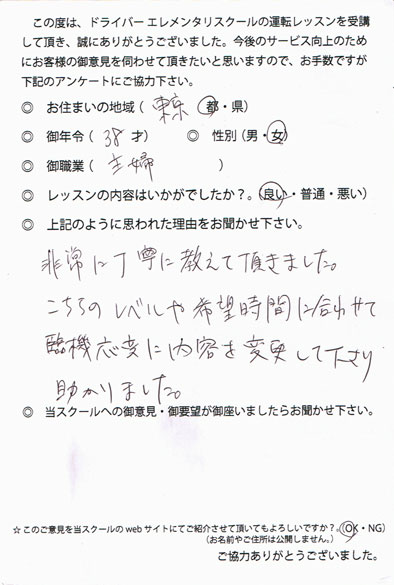 この度は、ドライバー エレメンタリスクールの運転レッスンを受講
して頂き、誠にありがとうございました。今後のサービス向上のため
にお客様の御意見を伺わせて頂きたいと思いますので、お手数ですが
下記のアンケートにご協力下さい。
◎ お住まいの地域（ 東京 都・県）
◎ 御年令（ 38 才） ◎ 性別（男・女）
◎ 御職業（ 主婦 ）
◎ レッスンの内容はいかがでしたか？。（良い・普通・悪い）
◎ 上記のように思われた理由をお聞かせ下さい。
非常に丁寧に教えて頂きました。
こちらのレベルや希望時間に合わせて
臨機応変に内容を変更して下さり
助かりました。
◎ 当スクールへの御意見・御要望が御座いましたらお聞かせ下さい。
☆このご意見を当スクールの web サイトにてご紹介させて頂いてもよろしいですか？。（OK・NG）
（お名前やご住所は公開しません。）
ご協力ありがとうございました。